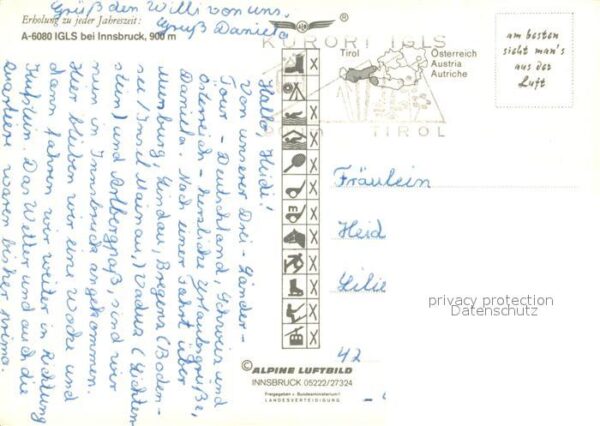 Grüß den Willi von uns.
Gruß Daniela
Erholung zu jeder Jahreszeit:
A-6080 IGLS bei Innsbruck, 900 m
AIR
KURORT IGLS
TIROL
Tirol
Österreich
Austria
Autriche
am besten
sieht man's
aus der
Luft
Hallo Heidi!
Von unserer Drei-Länder-
Tour - Deutschland, Schweiz und
Österreich - herzliche Urlaubsgrüße,
Daniela. Nach einer Fahrt über
Meersburg, Lindau, Bregenz (Boden-
see/Insel Mainau,) Vaduz (Lichten-
stein) und Arlbergpaß, sind wir
nun in Innsbruck angekommen.
Hier bleiben wir eine Woche und
dann fahren wir weiter in Richtung
Kufstein. Das Wetter und auch die
Quartiere waren bisher prima.
Fräulein
Heid
Lilie
42
privacy protection
Datenschutz
© ALPINE LUFTBILD
INNSBRUCK 05222/27324
Freigegeben v. Bundesministerium f.
LANDESVERTEIDIGUNG